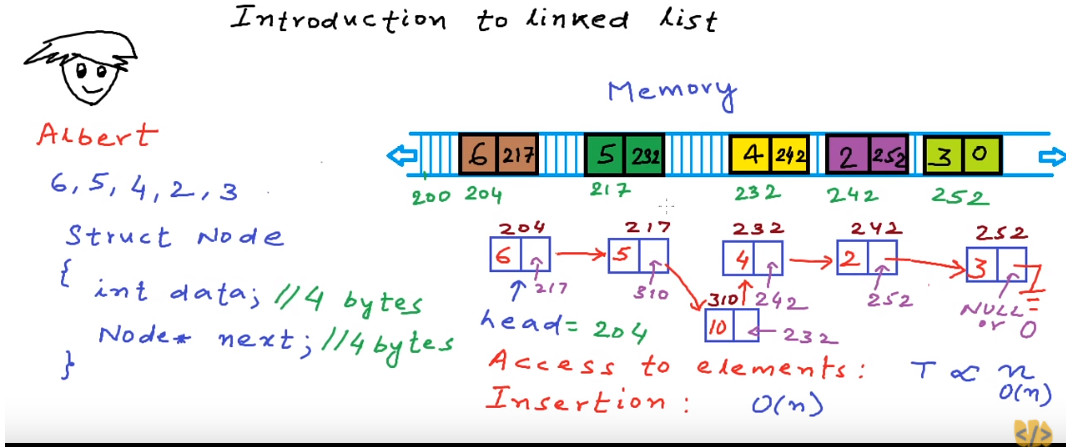 Introduction to linked list
Albert
6, 5, 4, 2, 3
Struct Node
{
int data; //4 bytes
Node* next; //4 bytes
}
Memory
6 217 5 232 4 242 2 252 3 0
200 204 217 232 242 252
204 217 232 242 252
6 5 4 2 3
217 310 310 242 252 NULL or 0
10 232
head = 204
Access to elements: T ∝ n
O(n)
Insertion: O(n)
</>